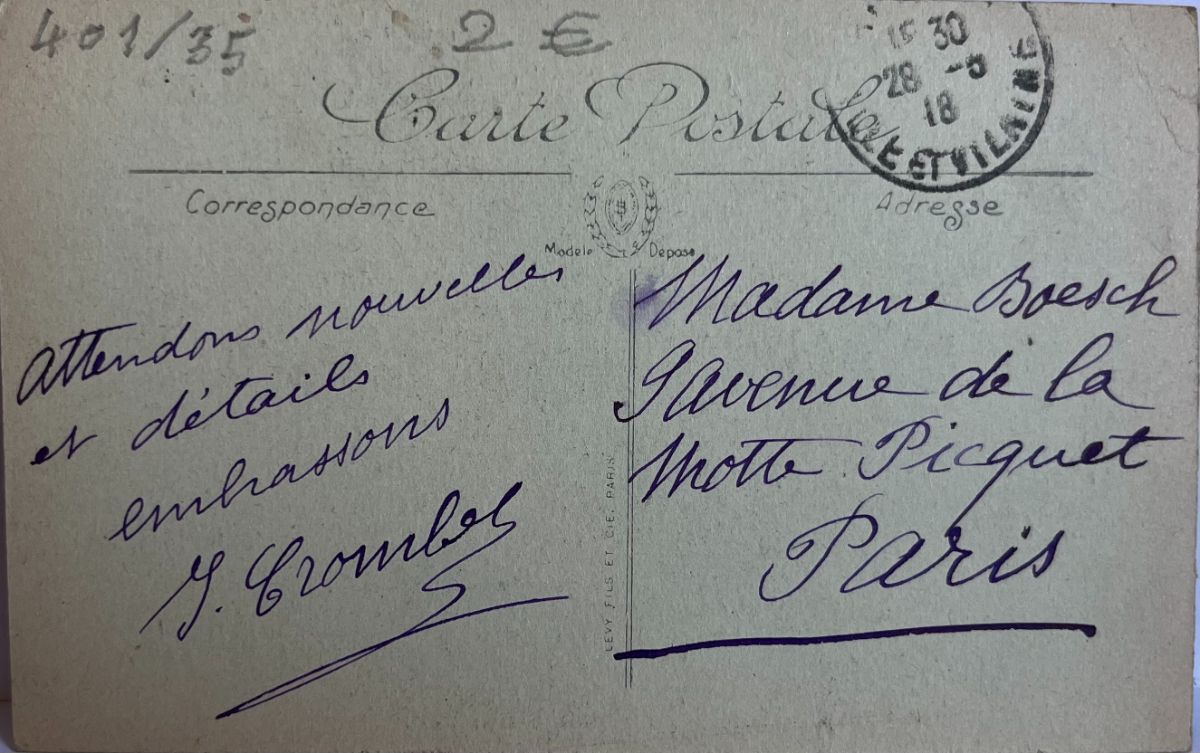 401/35 2 €
15 30
28 -5
18
ILLE ET VILAINE
Carte Postale
Correspondance
Adresse
Modèle Déposé
Attendons nouvelles
et détails
embrassons
J. Crombez
LEVY FILS ET CIE, PARIS
Madame Boesch
9 avenue de la
Motte Picquet
Paris